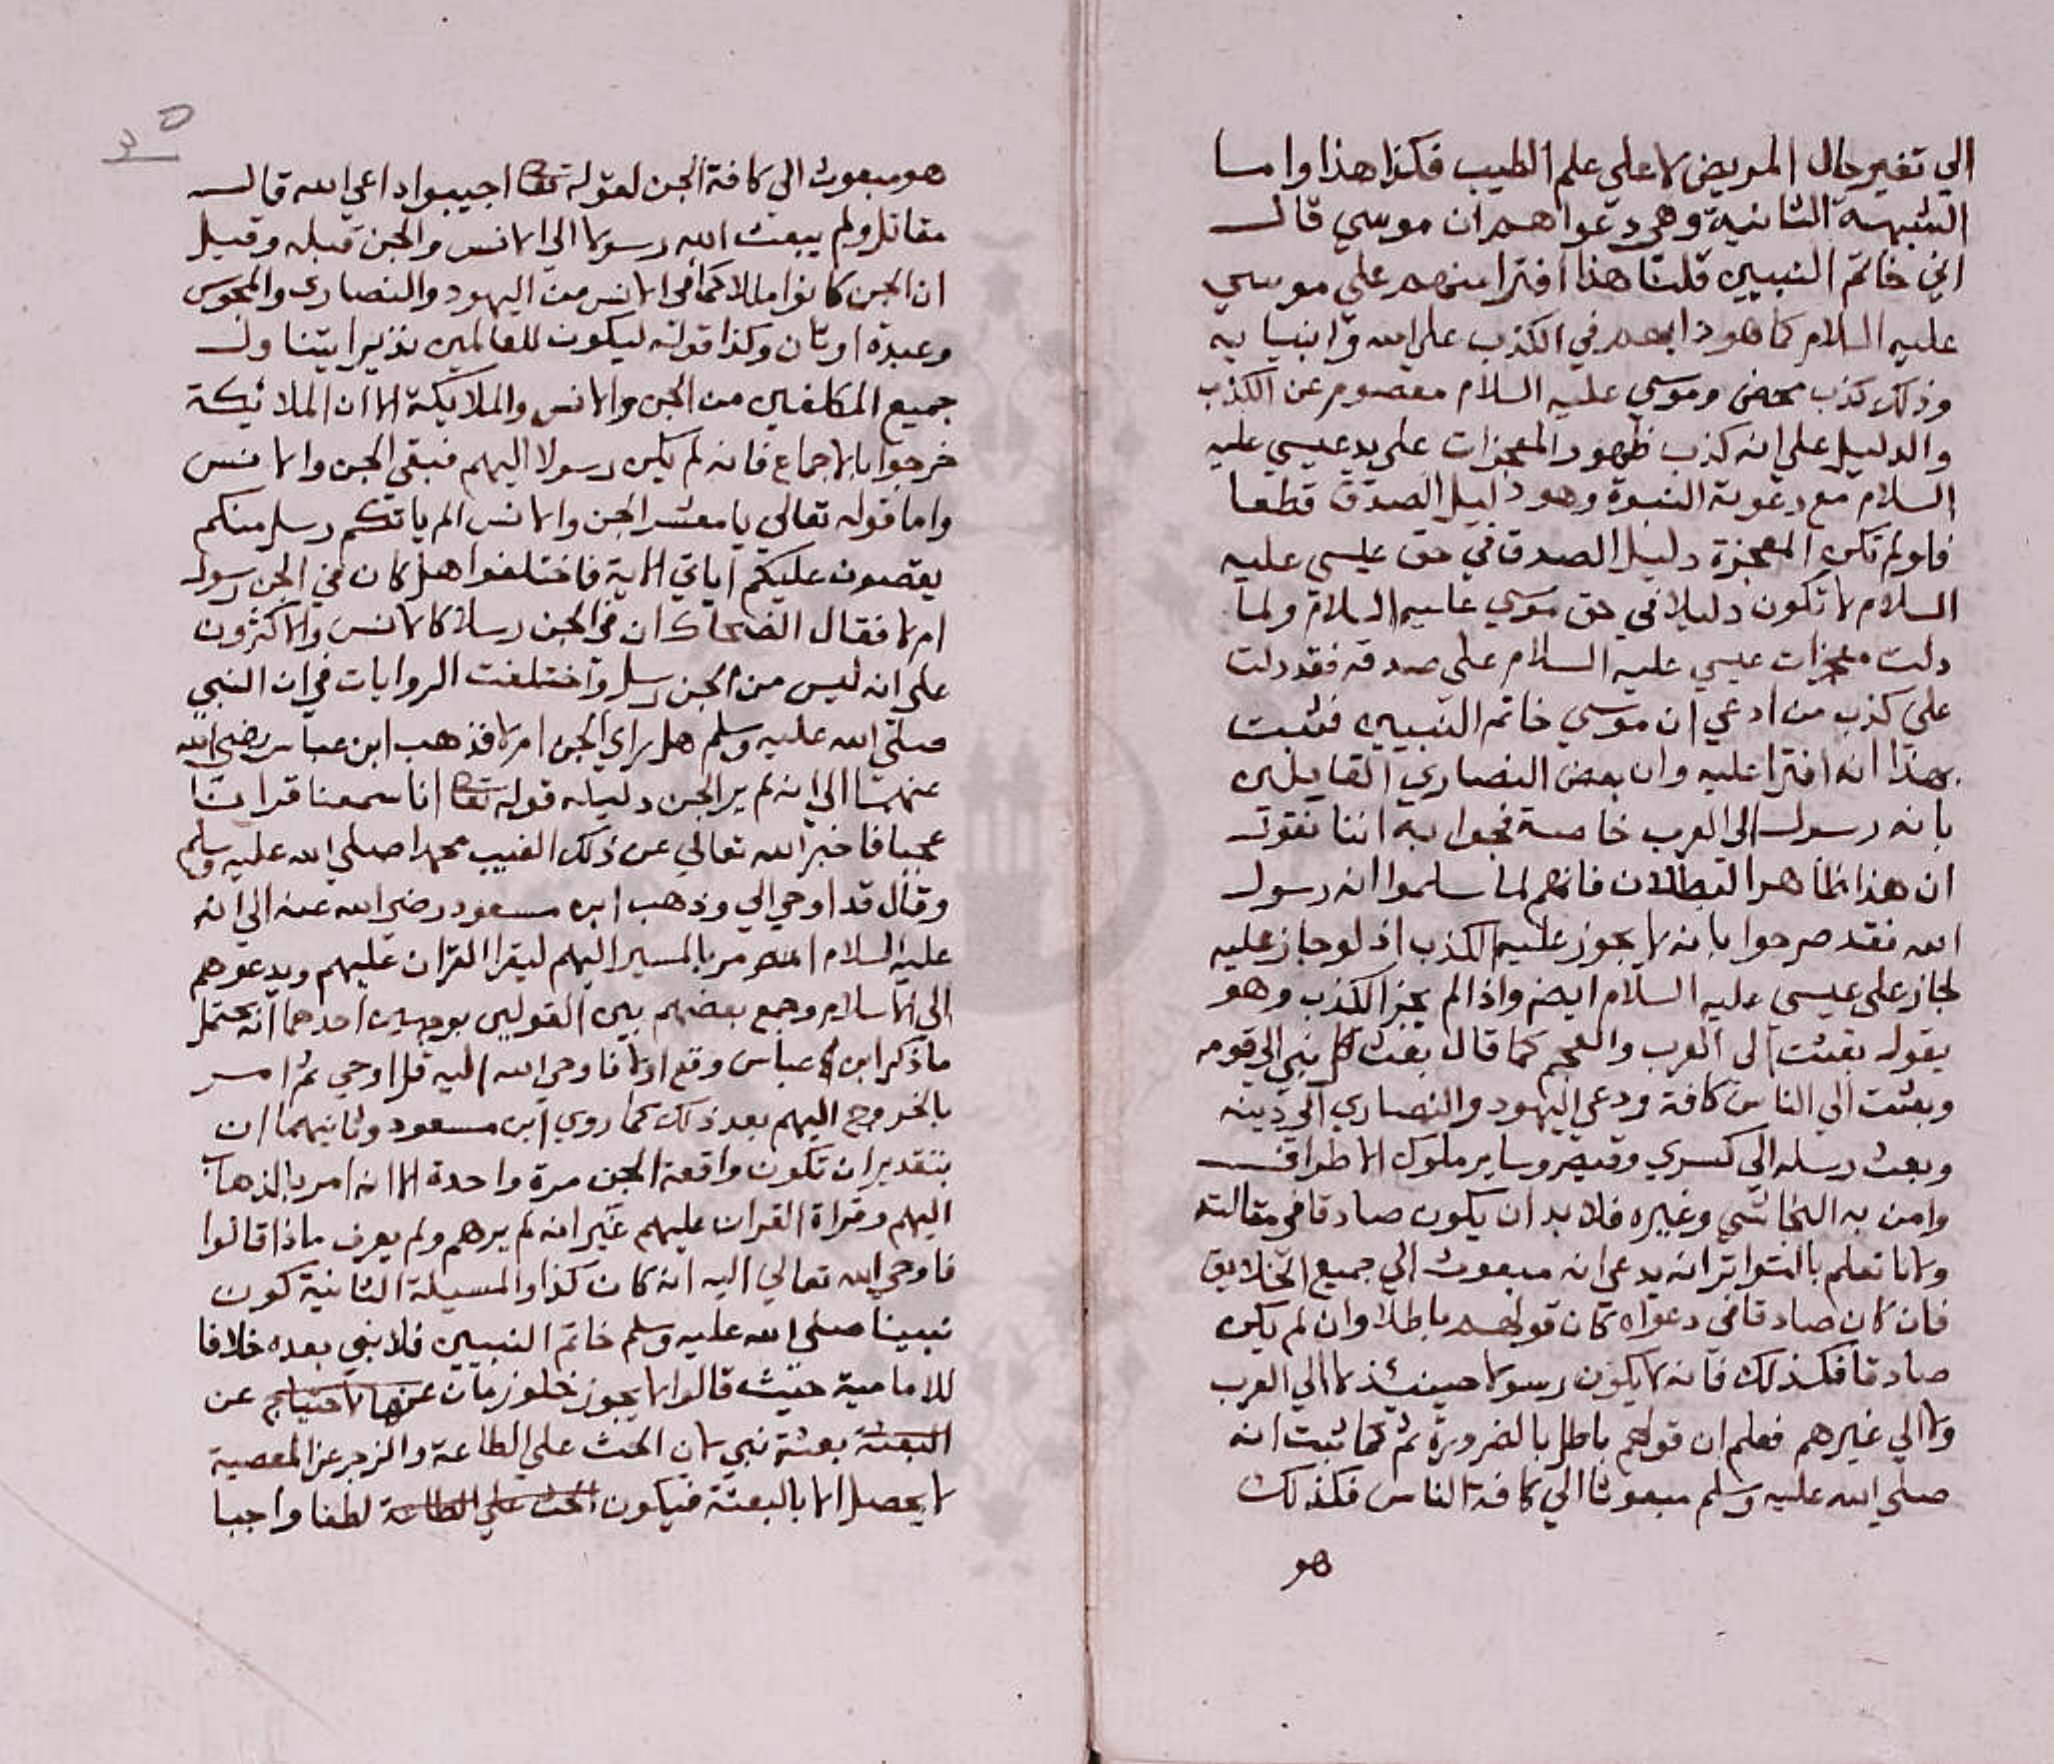 الي تغير حال المريض لا علي علم الطبيب فكذا هذا واما
الشبهة الثانية وهي دعواهم ان موسي قال
اني خاتم النبيين قلنا هذا افترا منهم علي موسي
عليه السلام كما هو دابهم في الكذب علي الله وانبيايه
وذلك كذب محض وموسي عليه السلام معصوم عن الكذب
والدليل علي انه كذب ظهور المعجزات علي يد عيسي عليه
السلام مع دعوته النبوة وهو دليل الصدق قطعا
فلو لم تكن المعجزة دليل الصدق في حق عيسي عليه
السلام لا تكون دليلا في حق موسي عليه السلام ولما
دلت معجزات عيسي عليه السلام علي صدقه فقد دلت
علي كذب من ادعي ان موسي خاتم النبيين فثبت
بهذا انه افترا عليه وان بعض النصاري القايلين
بانه رسول الي العرب خاصة فجوابه اننا نقول
ان هذا ظاهر البطلان فانهم لما سلموا انه رسول
الله فقد صرحوا بانه لا يجوز عليه الكذب اذ لو جاز عليه
لجاز علي عيسي عليه السلام ايضا واذا لم يجز الكذب وهو
يقول بعثت الي العرب والعجم كما قال بعث كل نبي الي قومه
وبعثت الي الناس كافة ودعي اليهود والنصاري الي دينه
وبعث رسله الي كسري وقيصر وساير ملوك الاطراف
وامن به النجاشي وغيره فلا بد ان يكون صادقا في مقالته
ولانا نعلم بالتواتر انه يدعي انه مبعوث الي جميع الخلايق
فان كان صادقا في دعواه كان قولهم باطلا وان لم يكن
صادقا فكذلك فانه لا يكون رسولا حينئذ لا الي العرب
ولا الي غيرهم فعلم ان قولهم باطل بالضرورة ثم كما ثبت انه
صلي الله عليه وسلم مبعوثا الي كافة الناس فكذلك
هو
هو مبعوث الي كافة الجن لقوله تعا اجيبوا داعي الله قال
مقاتل ولم يبعث الله رسولا الي الانس والجن قبله وقيل
ان الجن كانوا مللا كما في الانس من اليهود والنصاري والمجوس
وعبدة اوثان وكذا قوله ليكون للعالمين نذيرا يتناول
جميع المكلفين من الجن والانس والملايكة الا ان الملائكة
خرجوا بالاجماع فانه لم يكن رسولا اليهم فبقي الجن والانس
واما قوله تعالي يا معشر الجن والانس الم ياتكم رسل منكم
يقصون عليكم اياتي الاية فاختلفوا هل كان في الجن رسول
ام لا فقال الضحاك ان في الجن رسلا كالانس والاكثرون
علي انه ليس من الجن رسل واختلفت الروايات في ان النبي
صلي الله عليه وسلم هل راي الجن ام لا فذهب ابن عباس رضي الله
عنهما الي انه لم ير الجن دليله قوله تعا انا سمعنا قرانا
عجبا فاخبر الله تعالي عن ذلك الغيب محمدا صلي الله عليه وسلم
وقال قد اوحي الي وذهب ابن مسعود رضي الله عنه الي انه
عليه السلام امر بالمسير اليهم ليقرا القران عليهم ويدعوهم
الي الاسلام وجمع بعضهم بين القولين بوجهين احدهما انه يحتمل
ما ذكر ابن عباس وقع اولا فاوحي الله اليه قل اوحي ثم امر
بالخروج اليهم بعد ذلك كما روي ابن مسعود وثانيهما ان
بتقدير ان تكون واقعة الجن مرة واحدة الا انه امر بالذهاب
اليهم وقراة القران عليهم غير انه لم يرهم ولم يعرف ماذا قالوا
فاوحي الله تعالي اليه انه كان كذا والمسيلة الثانية كون
نبينا صلي الله عليه وسلم خاتم النبيين فلا نبي بعده خلافا
للامامية حيث قالوا لا يجوز خلو زمان عن
البعثة بعثة نبي لان الحث علي الطاعة والزجر عن المعصية
لا يحصل الا بالبعثة فيكون الحث علي الطاعة لطفا واجبا